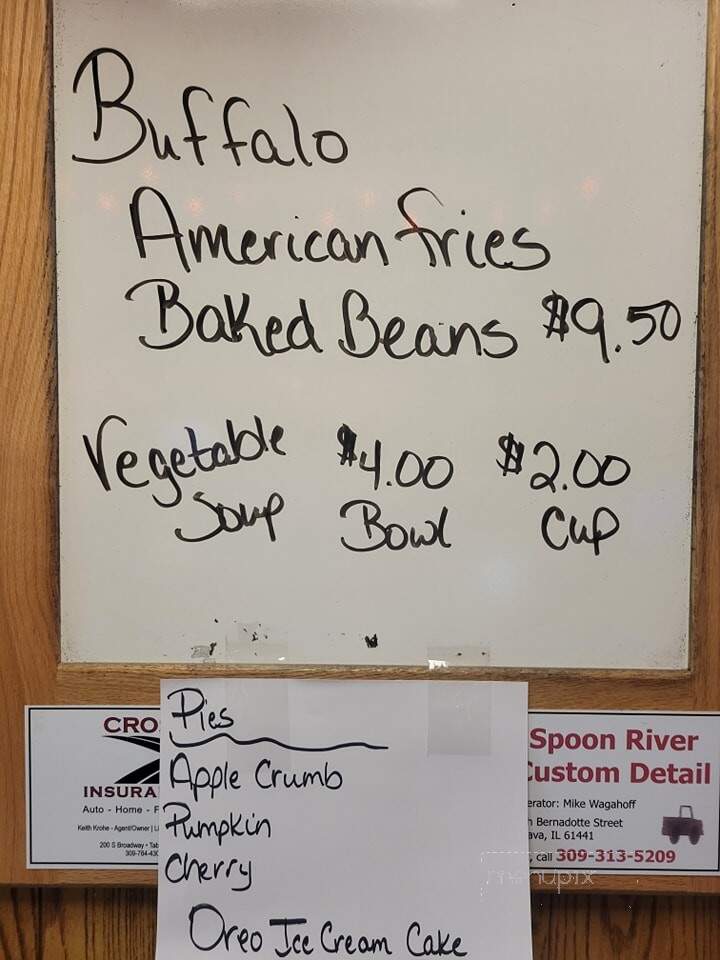 Buffalo
American fries
Baked Beans $9.50
Vegetable $4.00 $2.00
Soup Bowl Cup
Pies
Apple Crumb
Pumpkin
Cherry
Oreo Ice Cream Cake
CRO
INSURA
Auto - Home - F
Keith Krohe - Agent/Owner | Li
200 S Broadway - Tab
309-784-430
Spoon River
Custom Detail
erator: Mike Wagahoff
n Bernadotte Street
ava, IL 61441
call 309-313-5209
menupix